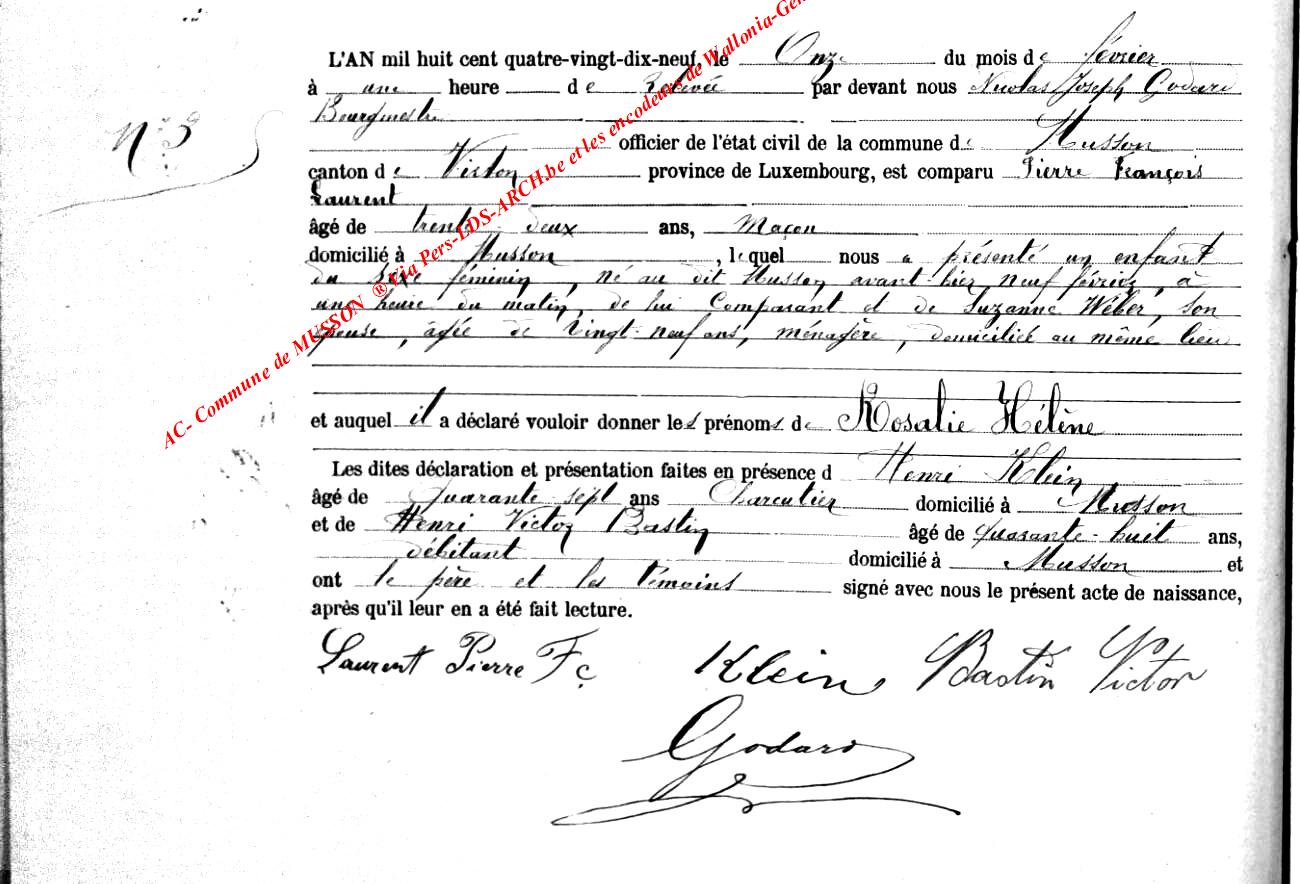 L'AN mil huit cent quatre-vingt-dix-neuf, le Onze du mois de février
à une heure de Relevée par devant nous Nicolas Joseph Godard
Bourgmestre
N° 
officier de l'état civil de la commune de Musson
canton de Virton province de Luxembourg, est comparu Pierre François
Laurent
âgé de trente deux ans, Maçon
domicilié à Musson, lequel nous a présenté un enfant
du sexe féminin, né au dit Musson avant-hier neuf février, à
une heure du matin, de lui Comparant et de Suzanne Wéber, son
épouse, âgée de Vingt-neuf ans, ménagère, domiciliée au même lieu
et auquel il a déclaré vouloir donner les prénoms de Rosalie Hélène
Les dites déclaration et présentation faites en présence d Henri Klein
âgé de Quarante sept ans Charcutier domicilié à Musson
et de Henri Victor Bastin âgé de Quarante-huit ans,
débitant domicilié à Musson et
ont le père et les témoins signé avec nous le présent acte de naissance,
après qu'il leur en a été fait lecture.
Laurent Pierre Fç Klein Bastin Victor
Godard
AC- Commune de MUSSON ® Via Pers-LDS-ARCH.be et les encodeurs de Wallonia-Gen